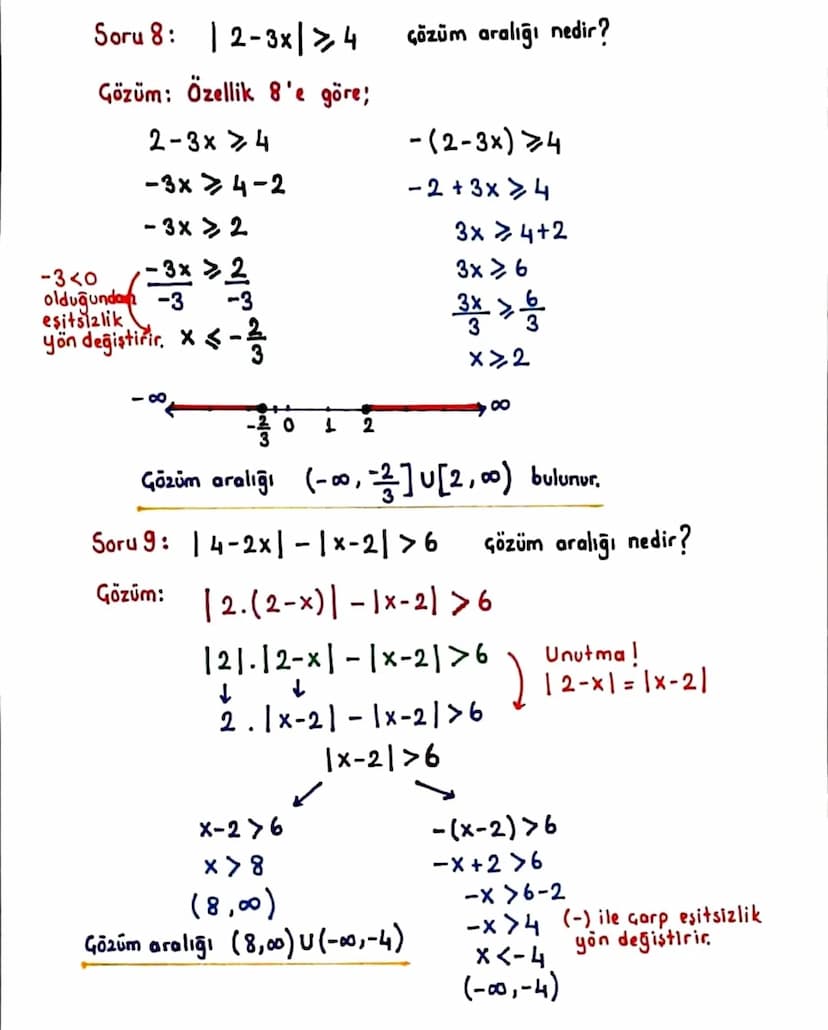 Soru 8: |2-3x| ⩾ 4 çözüm aralığı nedir?
Gözüm: Özellik 8'e göre;
2-3x ⩾ 4
-3x ⩾ 4-2
-3x ⩾ 2
-3x/-3 ⩾ 2/-3
-3<0
olduğundan
eşitsizlik
yön değiştirir.
x ⩽ -2/3
-(2-3x) ⩾ 4
-2+3x ⩾ 4
3x ⩾ 4+2
3x ⩾ 6
3x/3 ⩾ 6/3
x ⩾ 2
-∞ ∞
-2/3 0 1 2
Gözüm aralığı (-∞, -2/3] ∪ [2, ∞) bulunur.
Soru 9: |4-2x| - |x-2| > 6 çözüm aralığı nedir?
Gözüm: |2.(2-x)| - |x-2| > 6
|2|.|2-x| - |x-2| > 6
↓ ↓
2.|x-2| - |x-2| > 6
Unutma!
|2-x| = |x-2|
|x-2| > 6
x-2 > 6
x > 8
(8, ∞)
Gözüm aralığı (8, ∞) ∪ (-∞, -4)
-(x-2) > 6
-x+2 > 6
-x > 6-2
-x > 4
(-) ile çarp eşitsizlik
yön değiştirir.
x < -4
(-∞, -4)